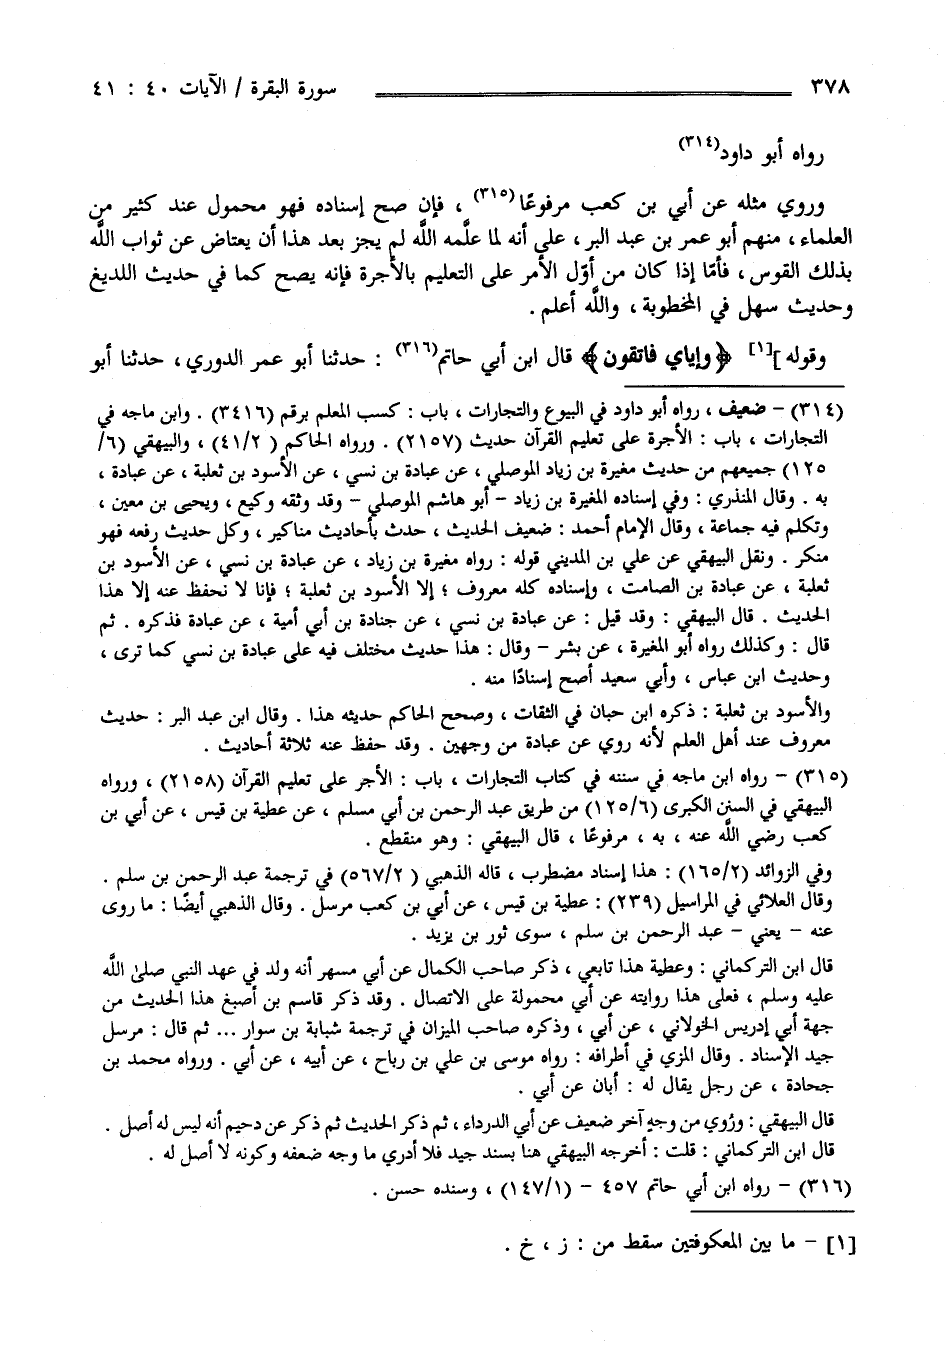 ٣٧٨ سورة البقرة / الآيات ٤٠ : ٤١
رواه أبو داود(٣١٤)
وروي مثله عن أبي بن كعب مرفوعًا(٣١٥) ، فإن صح إسناده فهو محمول عند كثير من
العلماء ، منهم أبو عمر بن عبد البر ، على أنه لما علَّمه اللَّه لم يجز بعد هذا أن يعتاض عن ثواب اللَّه
بذلك القوس ، فأمّا إذا كان من أوّل الأمر على التعليم بالأجرة فإنه يصح كما في حديث اللديغ
وحديث سهل في المخطوبة ، واللَّه أعلم .
وقوله ][١] ﴿وإياي فاتقون﴾ قال ابن أبي حاتم(٣١٦) : حدثنا أبو عمر الدوري ، حدثنا أبو
(٣١٤) – ضعيف ، رواه أبو داود في البيوع والتجارات ، باب : كسب المعلم برقم (٣٤١٦) . وابن ماجه في
التجارات ، باب : الأجرة على تعليم القرآن حديث (٢١٥٧) . ورواه الحاكم ( ٤١/٢) ، والبيهقي (٦/
١٢٥) جميعهم من حديث مغيرة بن زياد الموصلي ، عن عبادة بن نسي ، عن الأسود بن ثعلبة ، عن عبادة ،
به . وقال المنذري : وفي إسناده المغيرة بن زياد – أبو هاشم الموصلي – وقد وثقه وكيع ، ويحيى بن معين ،
وتكلم فيه جماعة ، وقال الإمام أحمد : ضعيف الحديث ، حدث بأحاديث مناكير ، وكل حديث رفعه فهو
منكر . ونقل البيهقي عن علي بن المديني قوله : رواه مغيرة بن زياد ، عن عبادة بن نسي ، عن الأسود بن
ثعلبة ، عن عبادة بن الصامت ، وإسناده كله معروف ؛ إلا الأسود بن ثعلبة ؛ فإنا لا نحفظ عنه إلا هذا
الحديث . قال البيهقي : وقد قيل : عن عبادة بن نسي ، عن جنادة بن أبي أمية ، عن عبادة فذكره . ثم
قال : وكذلك رواه أبو المغيرة ، عن بشر – وقال : هذا حديث مختلف فيه على عبادة بن نسي كما ترى ،
وحديث ابن عباس ، وأبي سعيد أصح إسنادًا منه .
والأسود بن ثعلبة : ذكره ابن حبان في الثقات ، وصحح الحاكم حديثه هذا . وقال ابن عبد البر : حديث
معروف عند أهل العلم لأنه روي عن عبادة من وجهين . وقد حفظ عنه ثلاثة أحاديث .
(٣١٥) – رواه ابن ماجه في سننه في كتاب التجارات ، باب : الأجر على تعليم القرآن (٢١٥٨) ، ورواه
البيهقي في السنن الكبرى (١٢٥/٦) من طريق عبد الرحمن بن أبي مسلم ، عن عطية بن قيس ، عن أبي بن
كعب رضي اللَّه عنه ، به ، مرفوعًا ، قال البيهقي : وهو منقطع .
وفي الزوائد (١٦٥/٢) : هذا إسناد مضطرب ، قاله الذهبي ( ٥٦٧/٢) في ترجمة عبد الرحمن بن سلم .
وقال العلائي في المراسيل (٢٣٩) : عطية بن قيس ، عن أبي بن كعب مرسل . وقال الذهبي أيضًا : ما روى
عنه – يعني – عبد الرحمن بن سلم ، سوى ثور بن يزيد .
قال ابن التركماني : وعطية هذا تابعي ، ذكر صاحب الكمال عن أبي مسهر أنه ولد في عهد النبي صلىٰ اللَّه
عليه وسلم ، فعلى هذا روايته عن أبي محمولة على الاتصال . وقد ذكر قاسم بن أصبغ هذا الحديث من
جهة أبي إدريس الخولاني ، عن أبي ، وذكره صاحب الميزان في ترجمة شبابة بن سوار ... ثم قال : مرسل
جيد الإسناد . وقال المزي في أطرافه : رواه موسى بن علي بن رباح ، عن أبيه ، عن أبي . ورواه محمد بن
جحادة ، عن رجل يقال له : أبان عن أبي .
قال البيهقي : ورُوي من وجهٍ آخر ضعيف عن أبي الدرداء ، ثم ذكر الحديث ثم ذكر عن دحيم أنه ليس له أصل .
قال ابن التركماني : قلت : أخرجه البيهقي هنا بسند جيد فلا أدري ما وجه ضعفه وكونه لا أصل له .
(٣١٦) – رواه ابن أبي حاتم ٤٥٧ – (١٤٧/١) ، وسنده حسن .
[١] – ما بين المعكوفتين سقط من : ز ، خ .